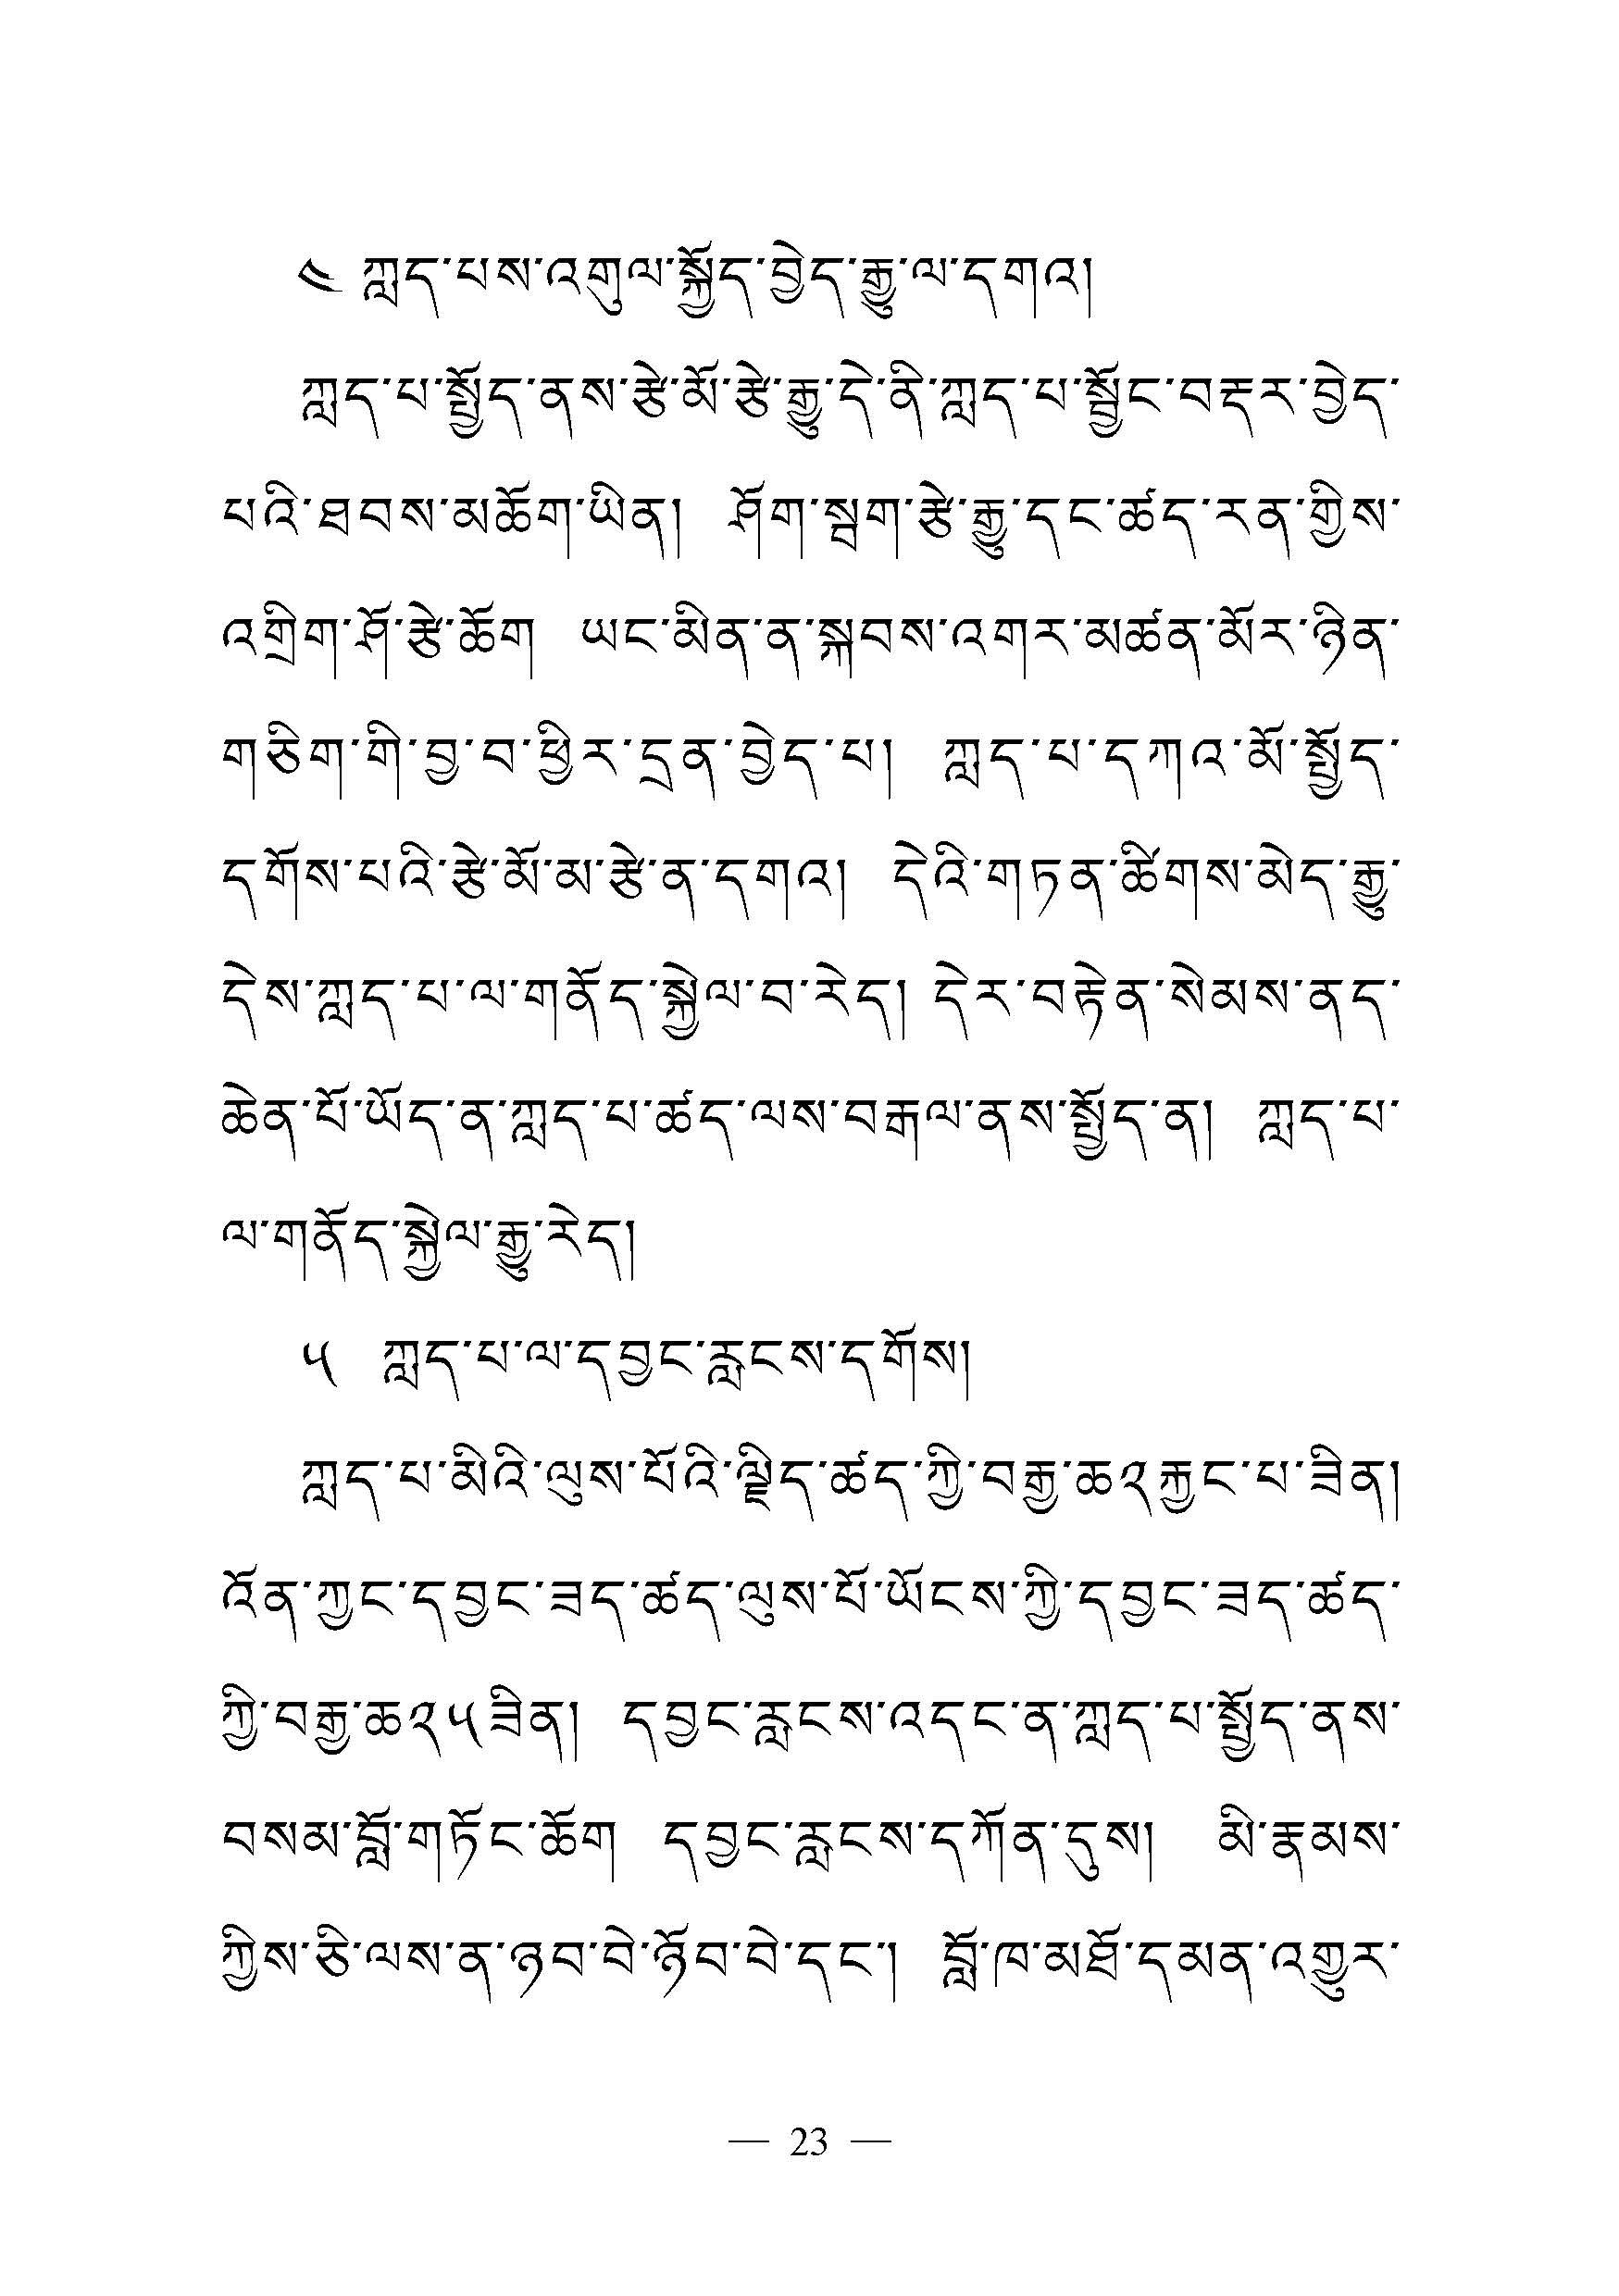 ༤ ཀླད་པས་འགུལ་སྐྱོད་བྱེད་རྒྱུ་ལ་དགའ།
ཀླད་པ་སྤྱོད་ནས་རྩེ་མོ་རྩེ་རྒྱུ་དེ་ནི་ཀླད་པ་སྦྱོང་བརྡར་བྱེད་
པའི་ཐབས་མཆོག་ཡིན།  ཤོག་སྦག་རྩེ་རྒྱུ་དང་ཚད་རན་གྱིས་
འགྲིག་ཤོ་རྩེ་ཆོག  ཡང་མིན་ན་སྐབས་འགར་མཚན་མོར་ཉིན་
གཅིག་གི་བྱ་བ་ཕྱིར་དྲན་བྱེད་པ།  ཀླད་པ་དཀའ་མོ་སྤྱོད་
དགོས་པའི་རྩེ་མོ་མ་རྩེ་ན་དགའ།  དེའི་གཏན་ཚིགས་མེད་རྒྱུ་
དེས་ཀླད་པ་ལ་གནོད་སྐྱེལ་བ་རེད། དེར་བརྟེན་སེམས་ནད་
ཆེན་པོ་ཡོད་ན་ཀླད་པ་ཚད་ལས་བརྒལ་ནས་སྤྱོད་ན།  ཀླད་པ་
ལ་གནོད་སྐྱེལ་རྒྱུ་རེད།
༥  ཀླད་པ་ལ་དབྱང་རླངས་དགོས།
ཀླད་པ་མིའི་ལུས་པོའི་ལྗིད་ཚད་ཀྱི་བརྒྱ་ཆ༢རྐྱང་པ་ཟིན།
འོན་ཀྱང་དབྱང་ཟད་ཚད་ལུས་པོ་ཡོངས་ཀྱི་དབྱང་ཟད་ཚད་
ཀྱི་བརྒྱ་ཆ༢༥ཟིན།  དབྱང་རླངས་འདང་ན་ཀླད་པ་སྤྱོད་ནས་
བསམ་བློ་གཏོང་ཆོག  དབྱང་རླངས་དཀོན་དུས།  མི་རྣམས་
ཀྱིས་ཅི་ལས་ན་ཉབ་བེ་ཉོབ་བེ་དང་།  བློ་ཁ་མཐོ་དམན་འགྱུར་
— 23 —